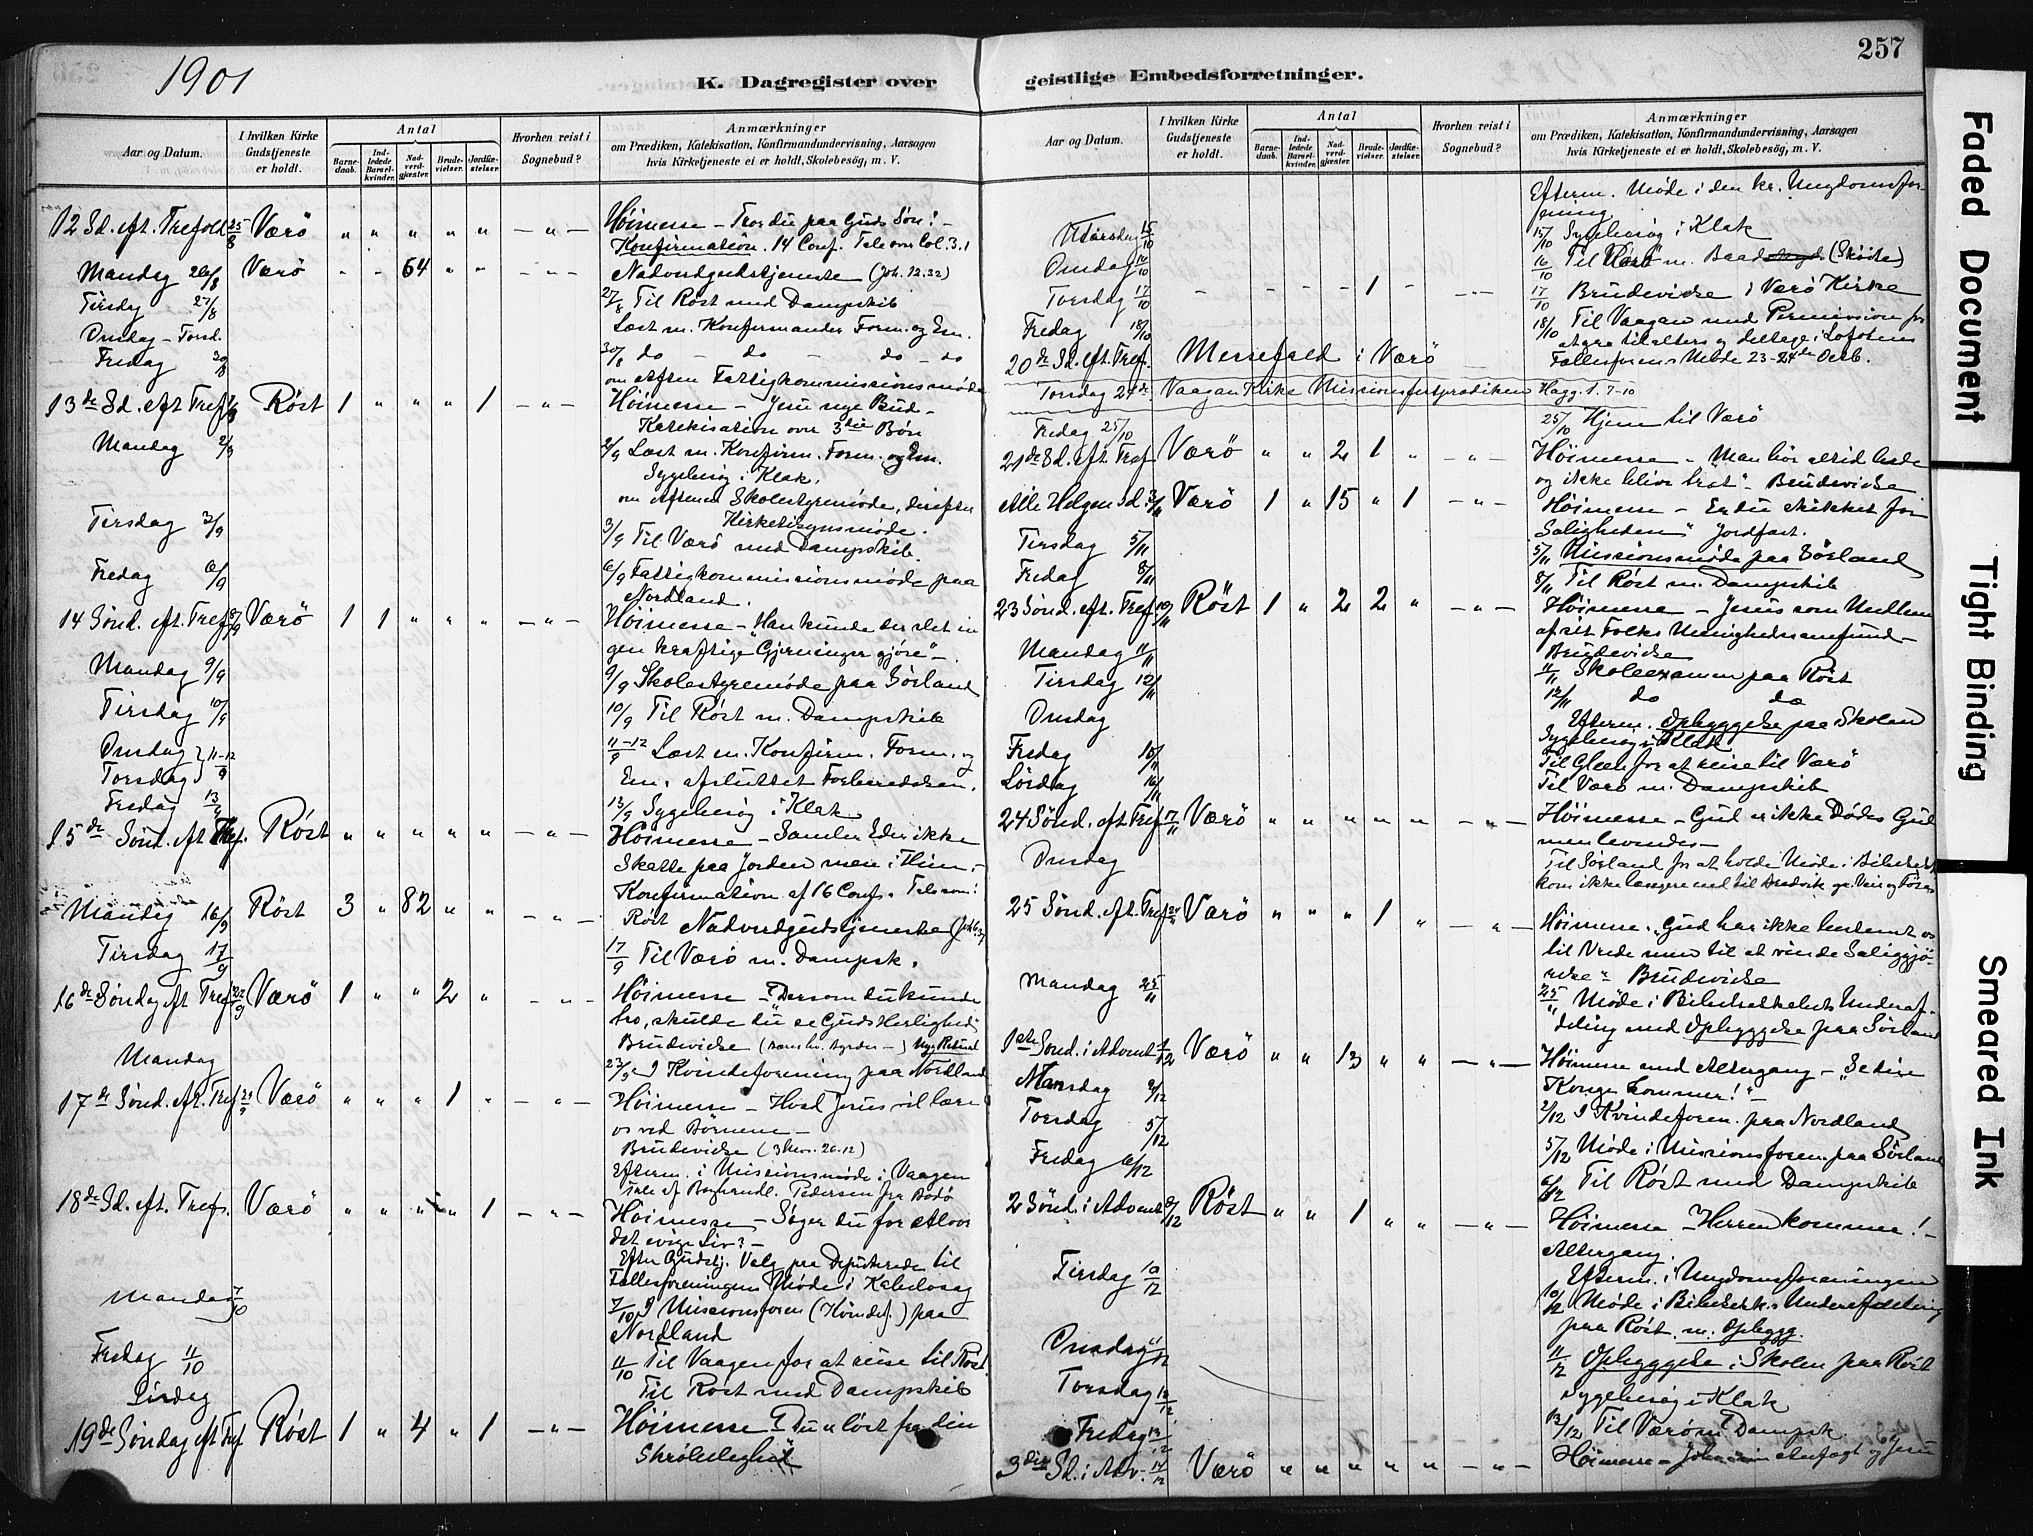 1901
K. Dagregister over
Aar og Datum.
I hvilken Kirke Gudstjeneste er holdt.
Antal
Barnedaab.
Indledede Barselkvinder.
Nadverdgjæster.
Brudevielser.
Jordfæstelser.
Hvorhen reist i Sognebud?
Anmærkninger
om Prædiken, Katekisation, Konfirmandundervisning, Aarsagen
hvis Kirketjeneste ei er holdt, Skolebesög, m. V.
12 Sd. eft. Trefold. 25/8 Værö " " " " " — " — Höimesse – Tror du paa Guds Sön? –
Konfirmation. 14 Conf. Tale over Col. 3.1
Mandag 26/8 Værö " " 64 " " — " — Nadverdgudstjeneste (Joh. 12.32)
Tirsdg 27/8 27/8 Til Röst med Dampskib
Onsdag – Torsd. Læst m. Konfirmander Form. og Em.
Fredag 30/8 30/8 do – do – do – do
om Aften Fattigkommissionsmöde
13de Sd. eft Tref 1/9 Röst 1 " " " 1 — " — Höimesse – Jesu nye Bud –
Katekisation over 3die Bön
Mandag 2/9 2/9 Læst m. Konfirm. Form. og Em.
Sygebesög i Klak.
om Aftenen Skolestyremöde, derefter
Kirketilsynsmöde.
Tirsdag 3/9 3/9 Til Værö med Dampskib
Fredag 6/9 6/9 Fattigkommissionsmöde paa
Nordland.
14 Sönd. eft. Tref 8/9 Værö 1 1 " " " — " — Höimesse – "Han kunde der slet in
gen kraftige Gjerninger gjöre" –
Mandag 9/9 9/9 Skolestyremöde paa Sörland
Tirsdag 10/9 10/9 Til Röst m. Dampskib
Onsdag Torsdag } 11–12/9 11–12/9 Læst m. Konfirm. Form. og
Em. afsluttet Forberedelsen.
Fredag 13/9 13/9 Sygebesög i Klak
15de Sönd. eft Tref. Röst " " " " " — " — Höimesse – Samler Eder ikke
Skatte paa Jorden men i Him. –
Konfirmation af 16 Conf. Tale
Mandag 16/9 Röst 3 " 82 " " — " — Röst Nadverdgudstjeneste
Tirsdag 17/9 17/9 Til Værö m. Dampsk.
16de Söndag eft Tref 22/9 Værö 1 " " 2 " — " — Höimesse – "Dersom du kunde
tro, skulde du se Guds Herlighed"
Brudevielse
Mandag 23/9 I Kvindeforening paa Nordland
17de Sönd. eft. Tref 29/9 Værö " " " 1 " — " — Höimesse – Hvad Jesus vil lære
os ved Börnene –
Brudevielse
Efterm. i Missionsmöde i Vaagen
Tale af Boghandl. Pedersen fra Bodö
18de Sd. eft. Tref. Værö " " " " 1 — " — Höimesse – Söger du for Alvor
det evige Liv? –
Efter Gudstj. Valg paa Deputerede til
Fællesforeningens Möde i Kabelvaag
Mandag 7/10 7/10 I Missionsforen (Kvindef.) paa
Nordland
Fredag 11/10 11/10 Til Vaagen for at reise til Röst.
Lördag Til Röst med Dampskib
19de Söndag eft Tref Röst 1 " 4 " 1 — " — Höimesse – "Du er löst fra din
Skröbelighed"
257
geistlige Embedsforretninger.
Aar og Datum.
I hvilken Kirke Gudstjeneste er holdt.
Antal
Barnedaab.
Indledede Barselkvinder.
Nadverdgjæster.
Brudevielser.
Jordfæstelser.
Hvorhen reist i Sognebud?
Anmærkninger
om Prædiken, Katekisation, Konfirmandundervisning, Aarsagen
hvis Kirketjeneste ei er holdt, Skolebesög, m. V.
Efterm. Möde i den kr. Ungdomsfor
ening
Tirsdag 15/10 15/10 Sygebesög i Klak
Onsdag 16/10 16/10 Til Værö m. Baad (Sköite)
Torsdag 17/10 – – – – 1 – — " — 17/10 Brudevielse i Værö Kirke
Fredag 18/10 18/10 Til Vaagan med Permission for
at gaa til alters og deltage i Lofotens
20de Sd. eft. Tref. Messefald i Værö Fællesforen. Möde 23–24de Octb.
Torsdag 24de. Vaagan Kirke Missionsfestprædiken Hagg. 1. 7–10
Fredag 25/10 25/10 Hjem til Værö
21de Sd. eft. Tref. Værö " " 2 1 " — " — Höimesse – "Man bör altid bede
og ikke blive træt" – Brudevielse
Alle Helgensd. 3/11 Værö 1 " 15 " 1 — " — Höimesse – Er du skikket for
Saligheden" Jordfæst.
Tirsdag 5/11 5/11 Missionsmöde paa Sörland
Fredag 8/11 8/11 Til Röst m. Dampskib
23 Sönd. eft. Tref. 10/11 Röst 1 " 2 2 " — " — Höimesse – Jesus som Medlem
af sit Folks Menighedssamfund –
Brudevielse
Mandag 11/11 11/11 Skoleexamen paa Röst
Tirsdag 12/11 12/11 do do
Onsdag Efterm. Opbyggelse paa Skolen
Sygebesög i Klak
Fredag 15/11 Til Gleen for at reise til Værö
Lördag 16/11 Til Værö m. Dampskib
24 Sönd. eft Tref 17/11 Værö " " " " " — " — Höimesse – Gud er ikke Dödes Gud
men levendes –
Onsdag Til Sörland for at holde Möde i Bibelselsk
kom ikke længere end til
25 Sönd. eft. Tref 24/11 Værö " " " 1 " — " — Höimesse. "Gud har ikke bestemt os
til Vrede men til at vinde Saliggjö-
relse" Brudevielse
Mandag 25/11 25/11 Möde i Bibelselskabets Underaf-
deling med Opbyggelse paa Sörland
1ste Sönd. i Advent 1/12 Værö " " 13 " " — " — Höimesse med Altergang – "Se din
Konge kommer!" –
Mandag 2/12 2/12 I Kvindeforen. paa Nordland
Torsdag 5/12 5/12 Möde i Missionsforen. paa Sörland
Fredag 6/12 6/12 Til Röst med Dampskib
2 Sönd. i Advent 8/12 Röst " " 1 " " — " — Höimesse – Herren kommer! –
Altergang.
Efterm. i Ungdomsforeningen
Tirsdag 10/12 10/12 Möde i Bibelselsk.s Underafdeling
paa Röst. m. Opbygg.
Onsdag 11/12 11/12 Opbyggelse i Skolen paa Röst
Torsdag 12/12 Sygebesög i Klak
Fredag 13/12 13/12 Til Værö m Dampsk.
3die Sd. i Adv. Værö " " " " " — " — Höimesse –
Faded Document
Tight Binding
Smeared Ink